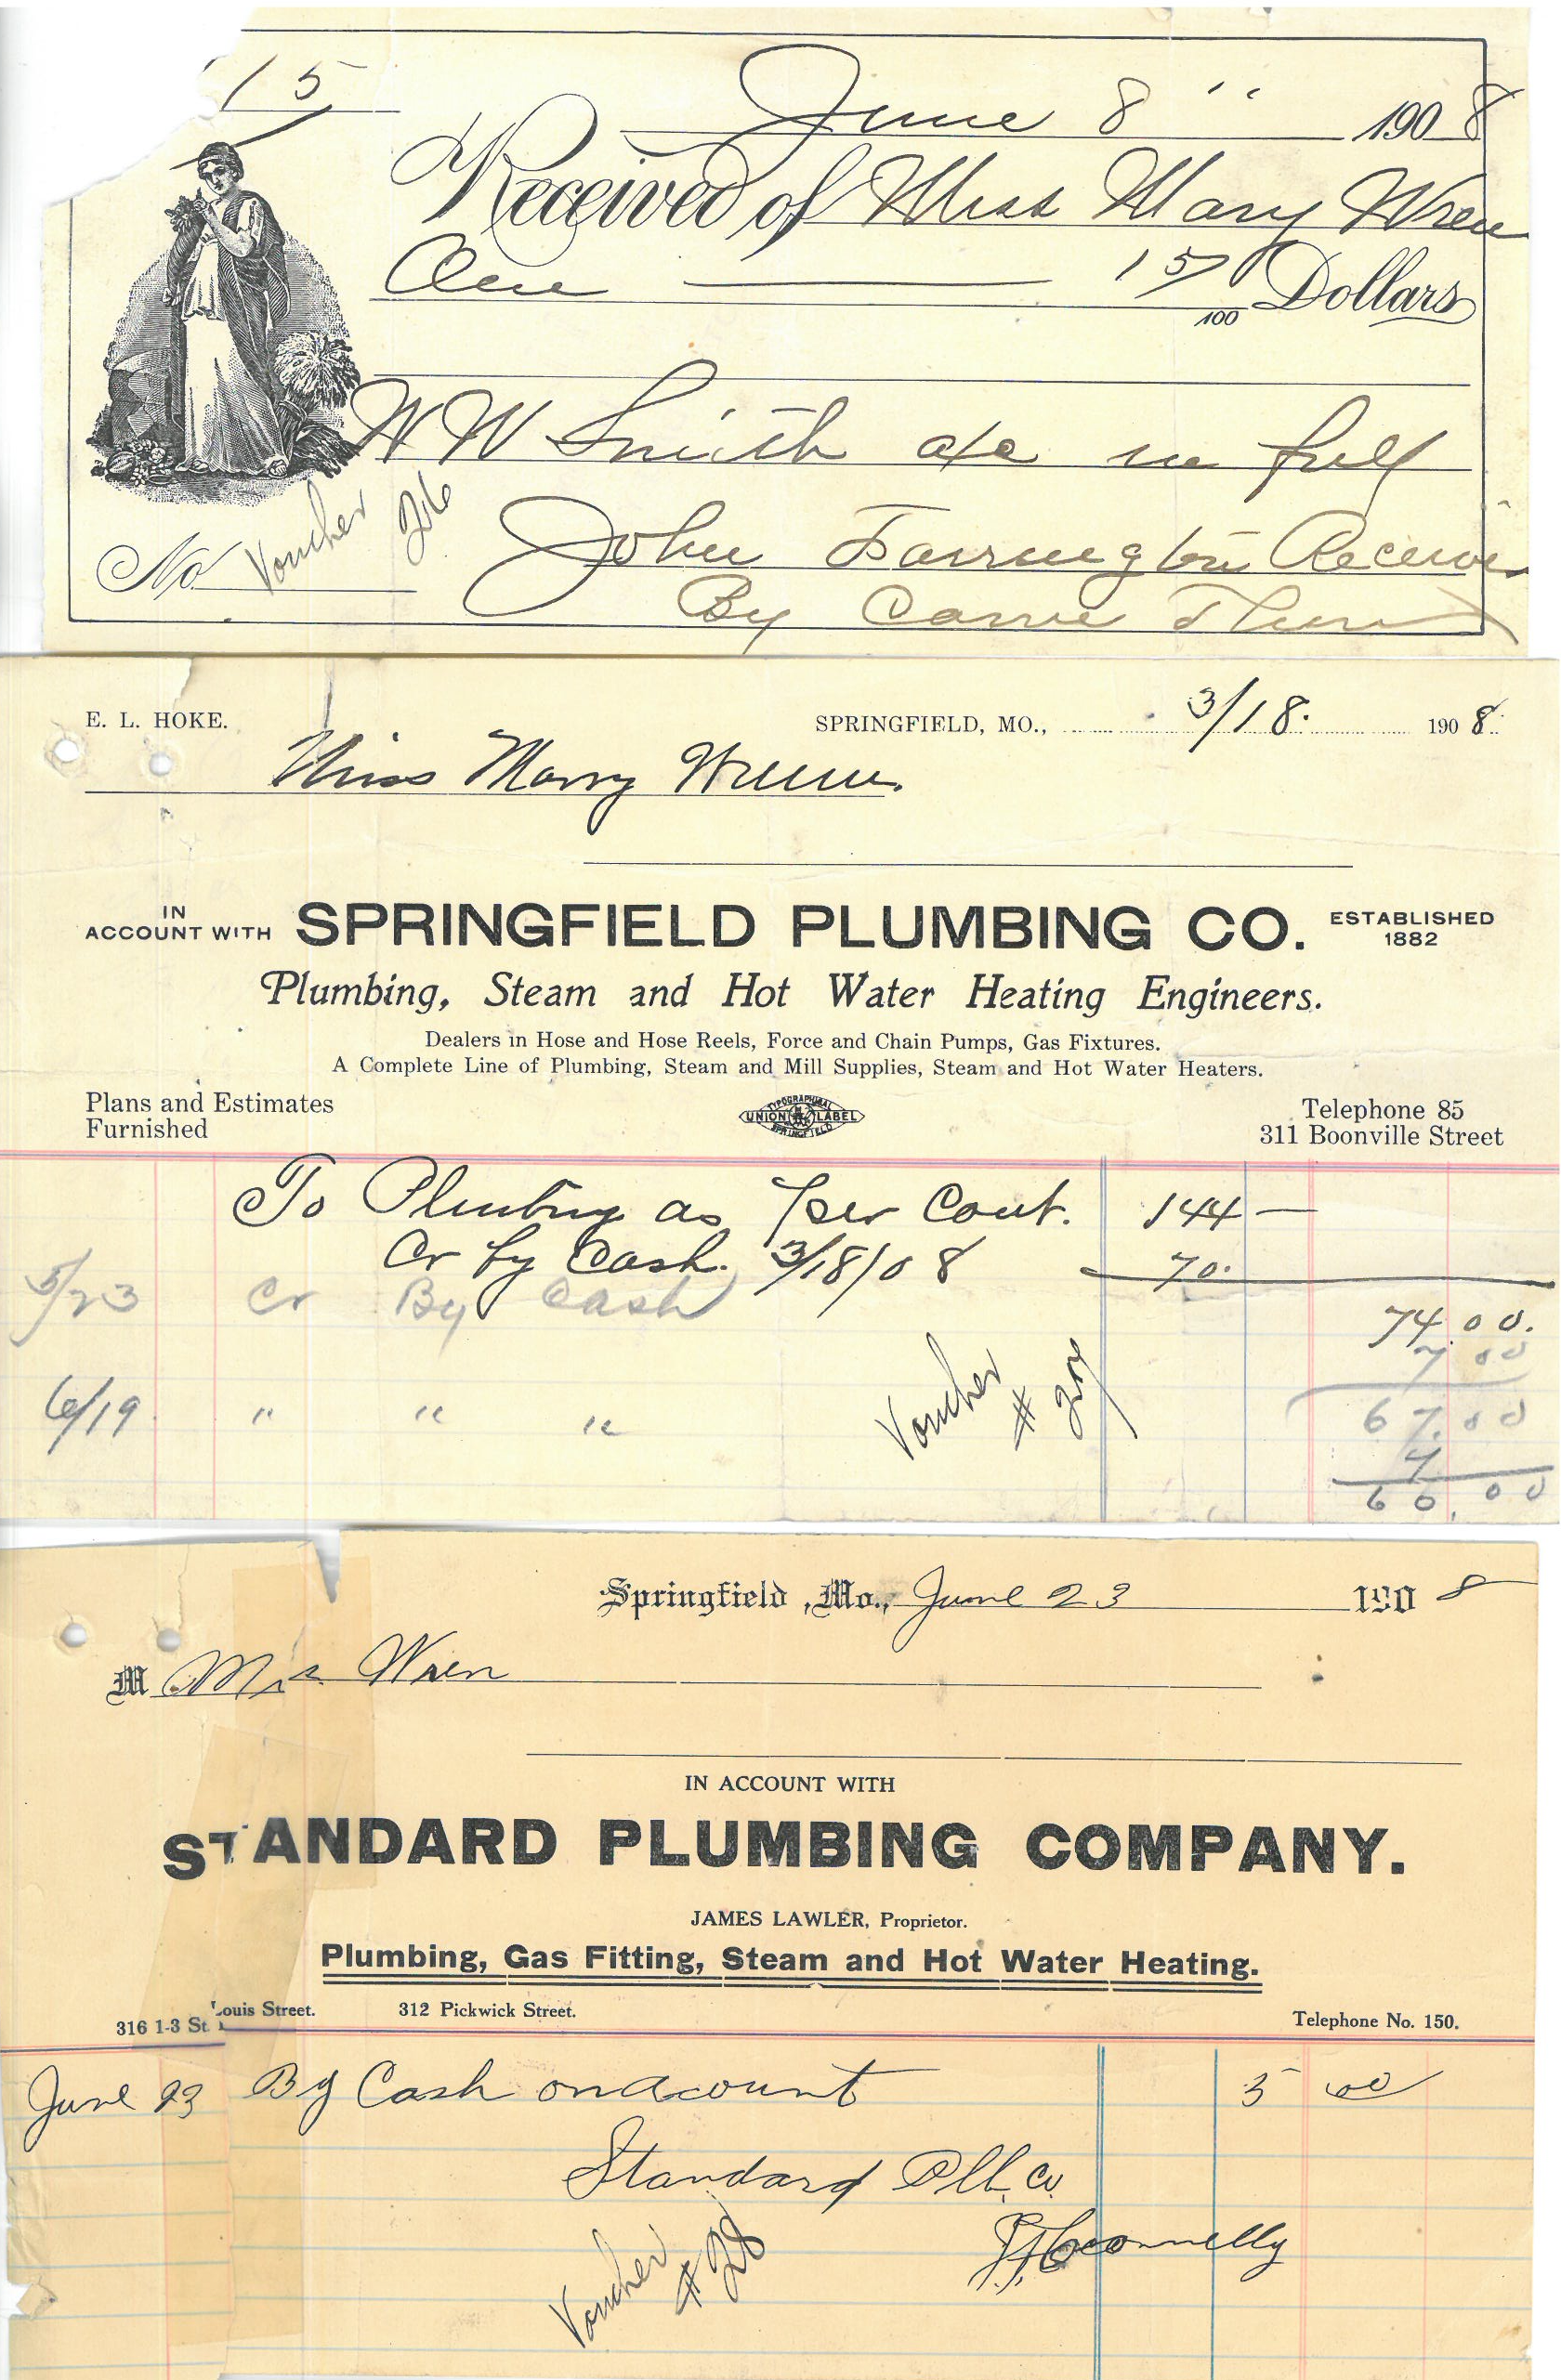 15
June 8 " 1908
Received of Miss Mary Wren
One 15/100 Dollars
W W Smith a/c in full
No Voucher 26
John Farrington Receiver
By Carrie
E. L. HOKE.
SPRINGFIELD, MO., 3/18. 1908.
Miss Marry
IN ACCOUNT WITH SPRINGFIELD PLUMBING CO. ESTABLISHED 1882
Plumbing, Steam and Hot Water Heating Engineers.
Dealers in Hose and Hose Reels, Force and Chain Pumps, Gas Fixtures.
A Complete Line of Plumbing, Steam and Mill Supplies, Steam and Hot Water Heaters.
Plans and Estimates
Furnished
TYPOGRAPHICAL
UNION LABEL
SPRINGFIELD
Telephone 85
311 Boonville Street
To Plumbing as per Cont. 144 —
Cr by Cash. 3/18/08 70.
74.00.
5/23 Cr By Cash 7 00
67.00
6/19 " " " 7
60.00
Voucher # 27
Springfield, Mo., June 23 1908
M Mis Wren
IN ACCOUNT WITH
STANDARD PLUMBING COMPANY.
JAMES LAWLER, Proprietor.
Plumbing, Gas Fitting, Steam and Hot Water Heating.
316 1-3 St. Louis Street. 312 Pickwick Street. Telephone No. 150.
June 23 By Cash on acount 5 00
Standard Plb. Co.
Connelly
Voucher # 28